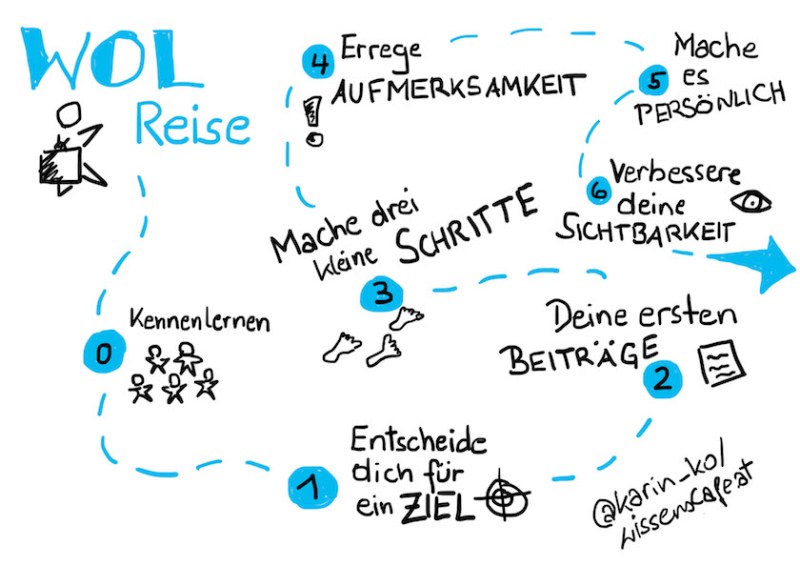 WOL
Reise
0
Kennenlernen
1
Entscheide
dich für
ein ZIEL
2
Deine ersten
BEITRÄGE
3
Mache drei
kleine SCHRITTE
4
Errege
AUFMERKSAMKEIT
!
5
Mache
es
PERSÖNLICH
6
Verbessere
deine
SICHTBARKEIT
@karin_kol
wissenscafe.at